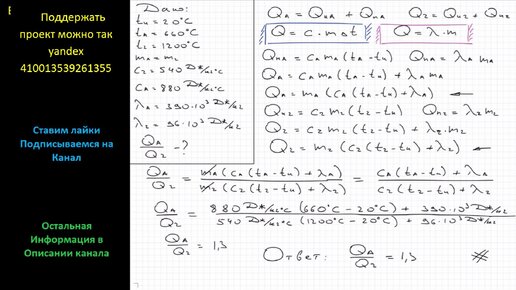 Поддержать
проект можно так
yandex
410013539261355
Ставим лайки
Подписываемся на
Канал
Остальная
Информация в
Описании канала
Дано:
tн = 20°C
tА = 660°C
t2 = 1200°C
mА = m2
C2 = 540 Дж/кг°C
CА = 880 Дж/кг°C
λА = 390·10³ Дж/кг
λ2 = 96·10³ Дж/кг
QА/Q2 - ?
QА = QнА + QпА   Q2 = Qн2 + Qп2
Q = c·m·Δt   Q = λ·m
QнА = CА mА (tА - tн)   QпА = λА mА
QА = CА mА (tА - tн) + λА mА
QА = mА (CА (tА - tн) + λА)
Qн2 = C2 m2 (t2 - tн)   Qп2 = λ2 m2
Q2 = C2 m2 (t2 - tн) + λ2·m2
Q2 = m2 (C2 (t2 - tн) + λ2)
QА/Q2 = mА (CА (tА - tн) + λА) / m2 (C2 (t2 - tн) + λ2) = CА (tА - tн) + λА / C2 (t2 - tн) + λ2
QА/Q2 = 880 Дж/кг°C (660°C - 20°C) + 390·10³ Дж/кг / 540 Дж/кг°C (1200°C - 20°C) + 96·10³ Дж/кг
QА/Q2 = 1,3
Ответ: QА/Q2 = 1,3